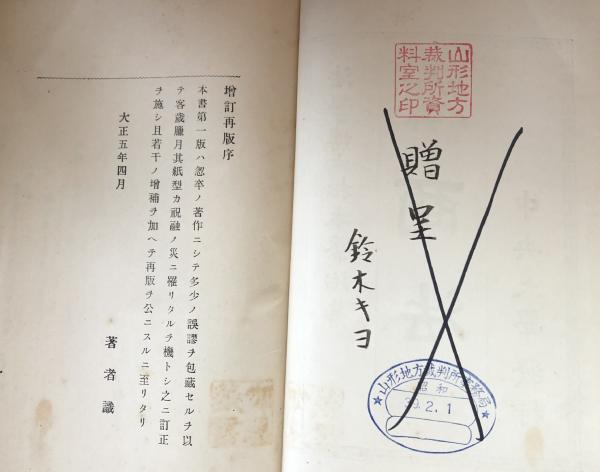 山形地方
裁判所資
料室之印
贈呈
鈴木キヨ
山形地方裁判所事務局
昭和
2.1
増訂再版序
本書第一版ハ怱卒ノ著作ニシテ多少ノ誤謬ヲ包蔵セルヲ以
テ客歳臘月其紙型カ祝融ノ災ニ罹リタルヲ機トシ之ニ訂正
ヲ施シ且若干ノ増補ヲ加ヘテ再版ヲ公ニスルニ至リタリ
大正五年四月
著者識